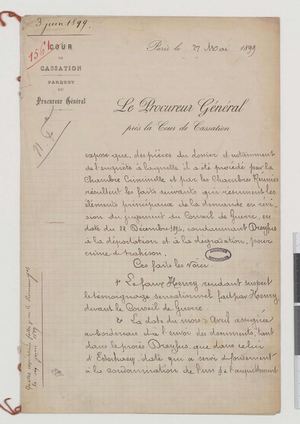 3 juin 1899.
COUR
DE
CASSATION
PARQUET
DU
Procureur Général
Paris le 27 Mai 1899
Le Procureur Général
près la Cour de Cassation
expose que, des pièces du dossier et notamment
de l'enquête à laquelle il a été procédé par la
Chambre Criminelle et par les Chambres Réunies
résultent les faits suivants qui résument les
éléments principaux de la demande en révi-
sion du jugement du Conseil de Guerre, en
date du 22 Décembre 1894, condamnant Dreyfus
à la déportation et à la dégradation, pour
crime de trahison.
Ces faits les voici
1° Le faux Henry, rendant suspect
le témoignage sensationnel fait par Henry
devant le Conseil de Guerre.
2° La date du mois d'Avril assignée
au bordereau et à l'envoi des documents, tant
dans le procès Dreyfus, que dans celui
d'Esterhazy, date qui a servi de fondement
à la condamnation de l'un et à l'acquittement